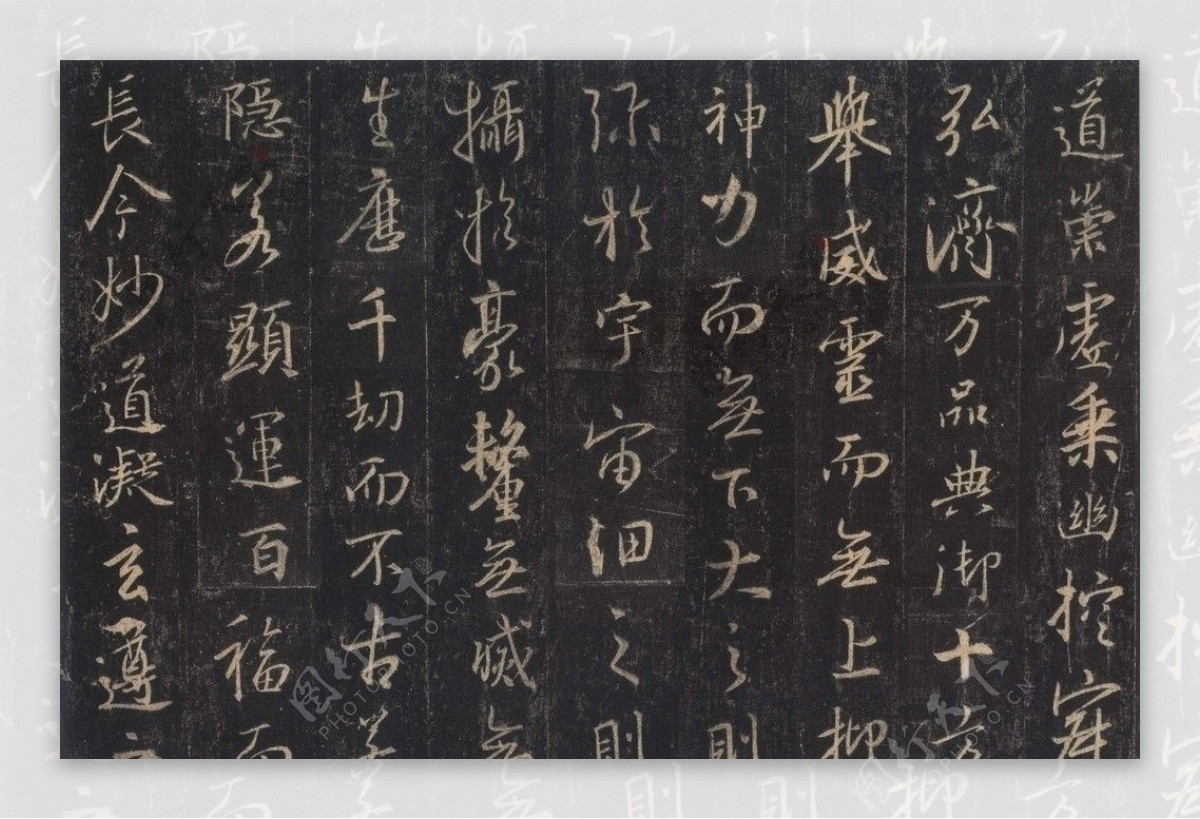 道崇虛乘幽控寂
弘濟万品典御十方
舉威靈而無上抑
神力而無下大之則
弥於宇宙細之則
攝於豪釐無滅無
生歷千劫而不古
隐若顯運百福而
長今妙道凝玄遵
图行天下 PHOTOPHOTO.CN